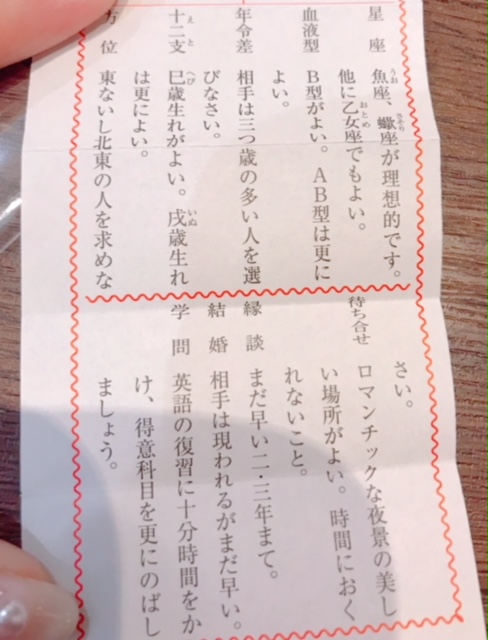 星座 魚座、蠍座が理想的です。
他に乙女座でもよい。
血液型 B型がよい。AB型は更に
よい。
年令差 相手は三つ歳の多い人を選
びなさい。
十二支 巳歳生れがよい。戌歳生れ
は更によい。
方位 東ないし北東の人を求めな
さい。
待ち合せ ロマンチックな夜景の美し
い場所がよい。時間におく
れないこと。
縁談 まだ早い二・三年まて。
結婚 相手は現われるがまだ早い。
学問 英語の復習に十分時間をか
け、得意科目を更にのばし
ましょう。